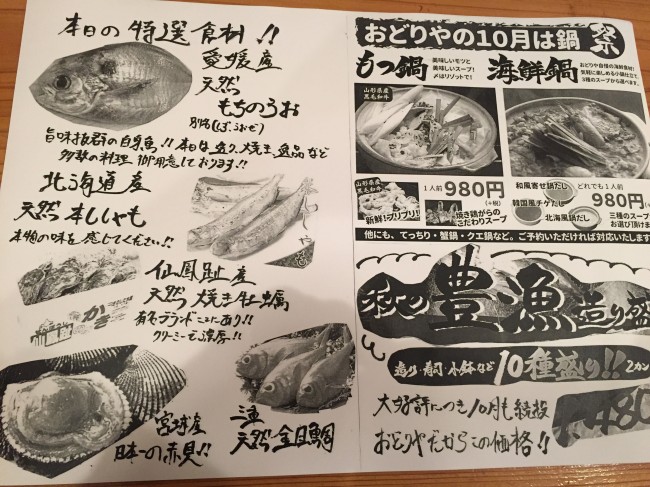 本日の特選食材!!
愛媛産
天然
もちのうお
別名(しずorぼうぜ)
旨味抜群の白身魚!!本日は造り、焼き、逸品など
多数の料理御用意しております!!
北海道産
天然本ししゃも
本物の味を感じてください!!
仙鳳趾産
天然焼き牡蠣
有名ブランド
クリーミーで濃厚!!
宮城産
日本一の赤貝!!
三重
天然金目鯛
おどりやの10月は鍋祭
もつ鍋
美味しいモツと
美味しいスープ!
〆はリゾットで!
海鮮鍋
おどりや自慢の海鮮食材!
気軽に楽しめる小鍋仕立て
3種のスープから選べます。
山形県産
黒毛和牛
山形県産
黒毛和牛
新鮮!プリプリ!
1人前 980円
(+税)
焼き鶏がらの
こだわりスープ
和風寄せ鍋だし
韓国風チゲだし
北海風鍋だし
どれでも1人前
980円
(+税)
三種のスープ
お選び頂けま
他にも、てっちり・蟹鍋・クエ鍋など。ご予約いただければ対応いたします
秋の豊漁造り盛
造り・寿司・小鉢など10種盛り!!2カン
大好評につき10月も続投
おどりやだからこの価格!!
1,480